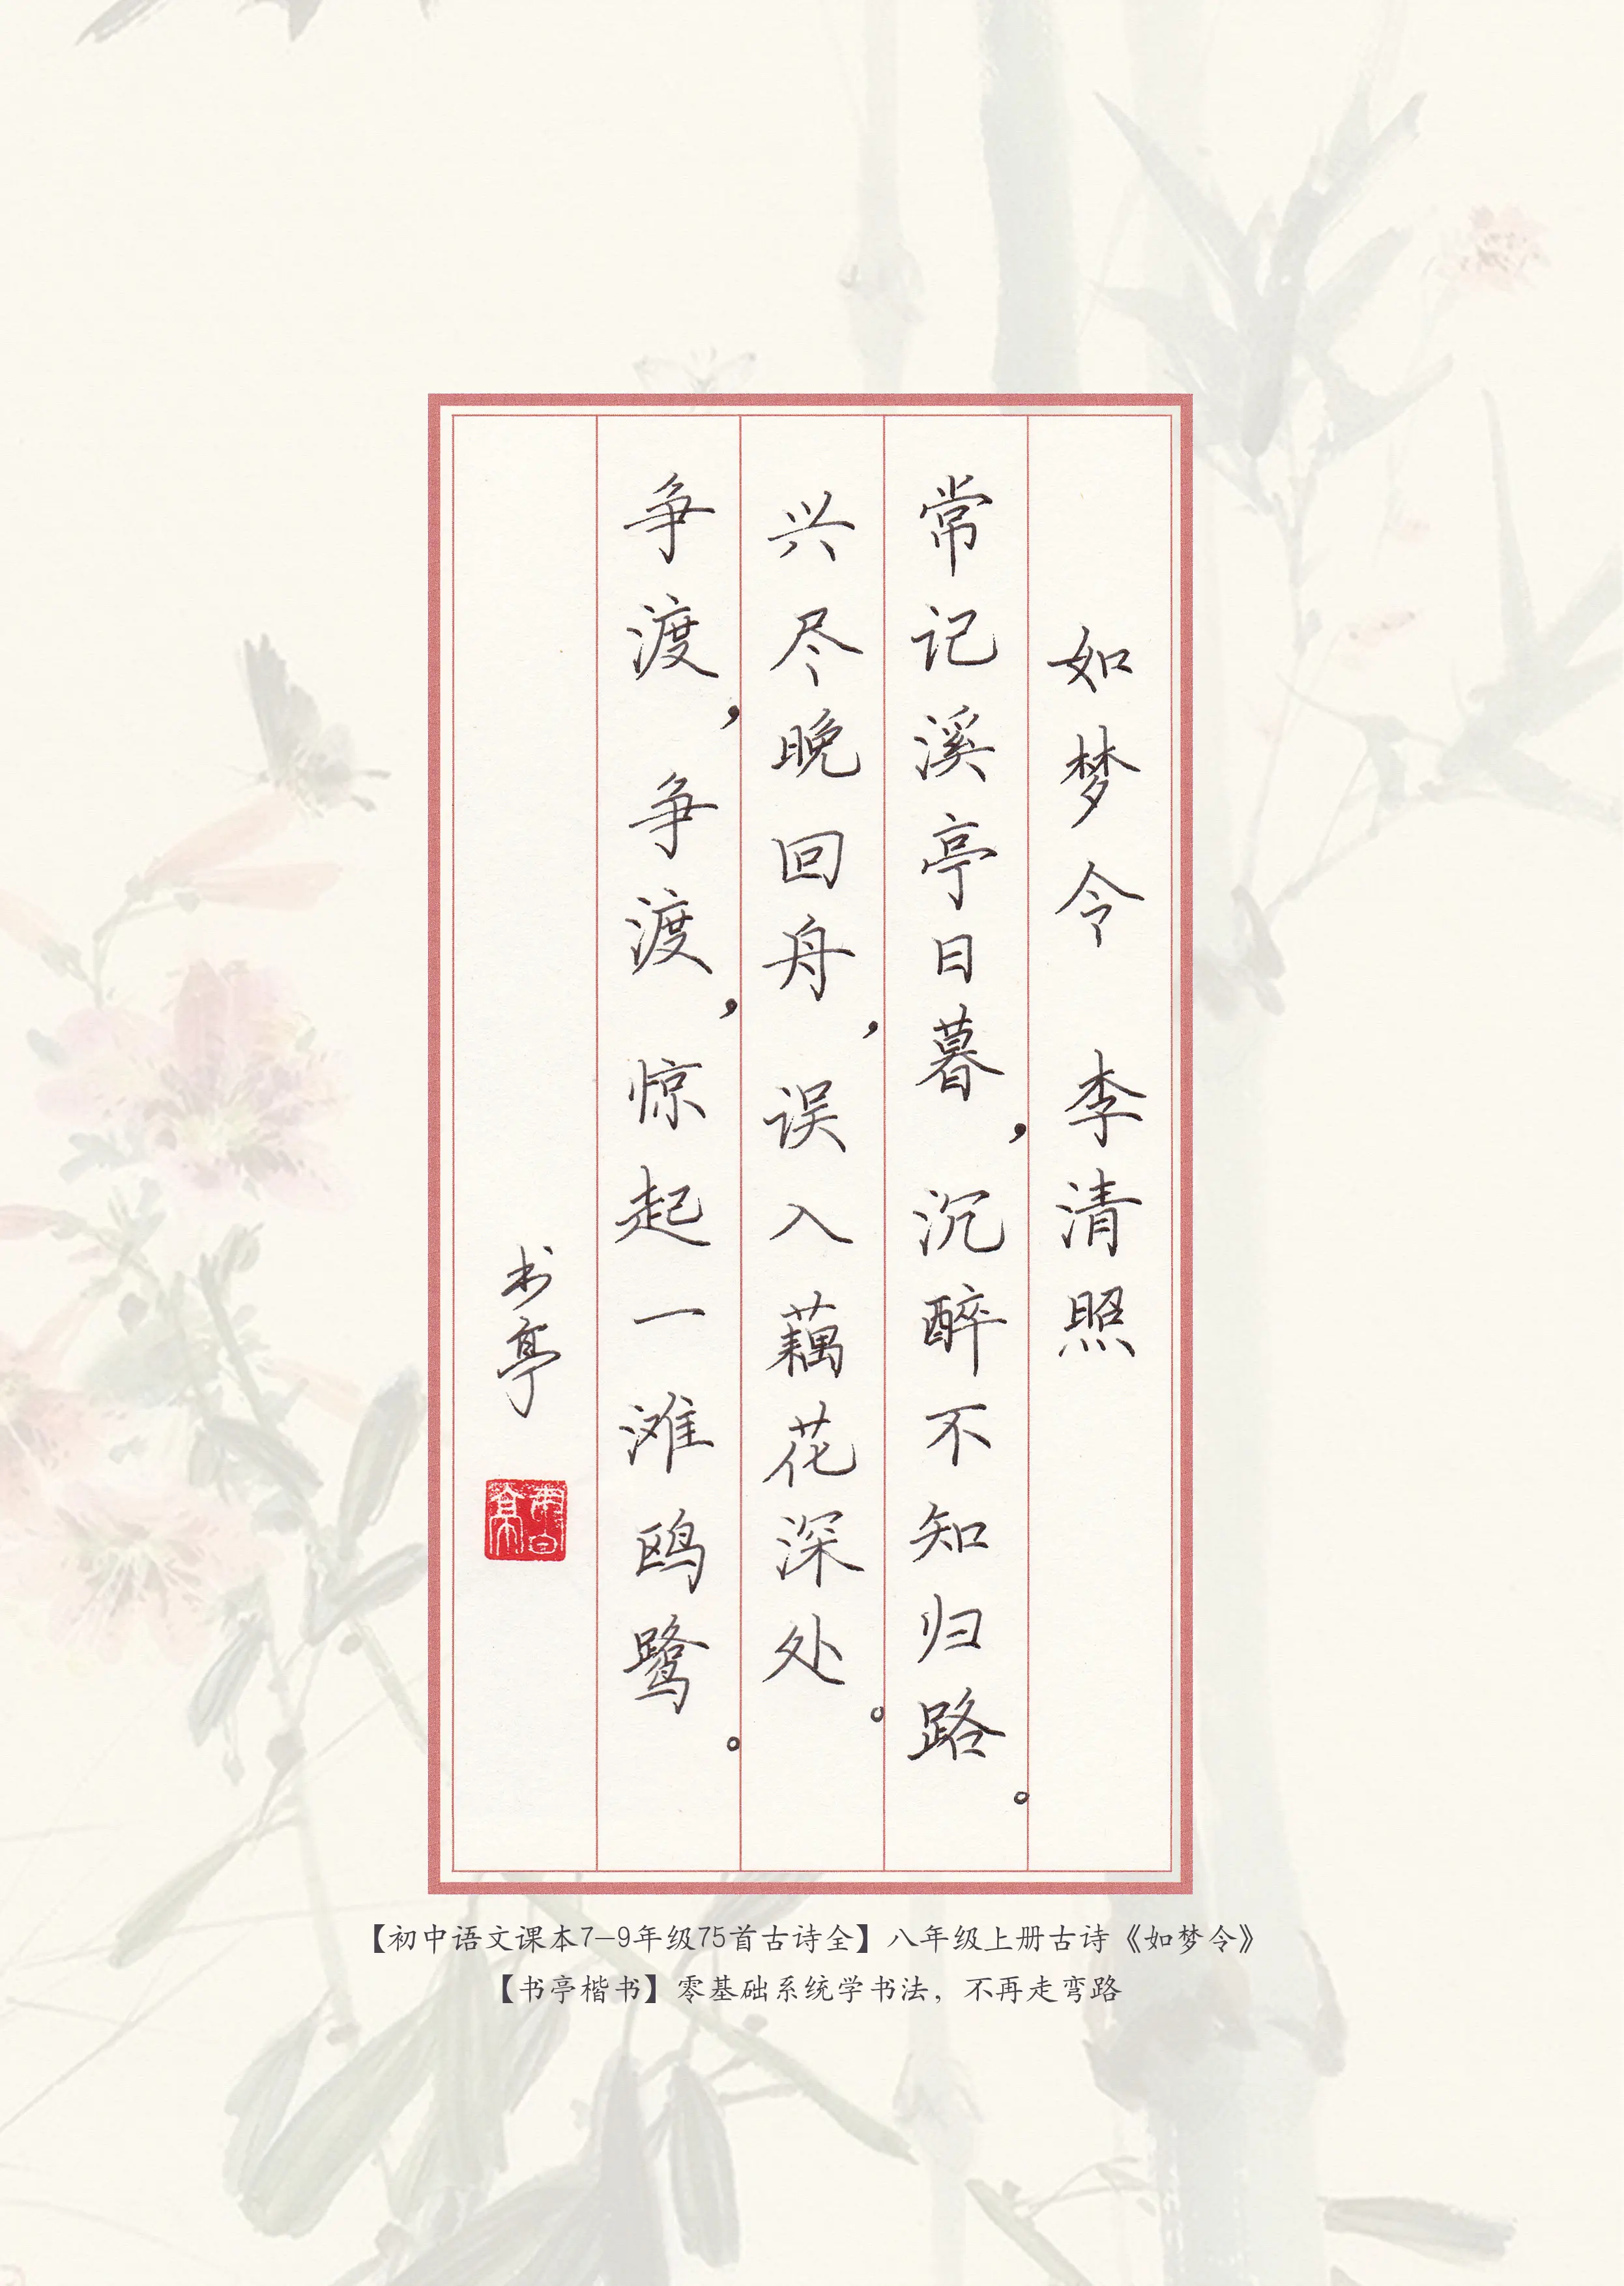 如梦令 李清照
常记溪亭日暮，沉醉不知归路。
兴尽晚回舟，误入藕花深处。
争渡，争渡，惊起一滩鸥鹭。
书亭
【初中语文课本7-9年级75首古诗全】八年级上册古诗《如梦令》
【书亭楷书】零基础系统学书法，不再走弯路